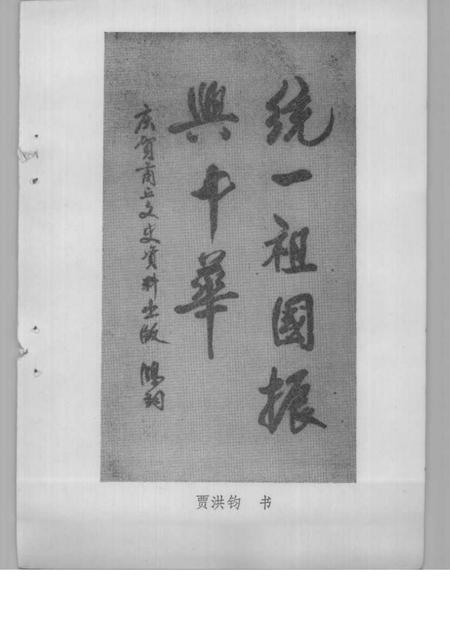 統一祖國振
興中華
庆贺商丘文史資料出版 鴻鈞
贾洪钧 书